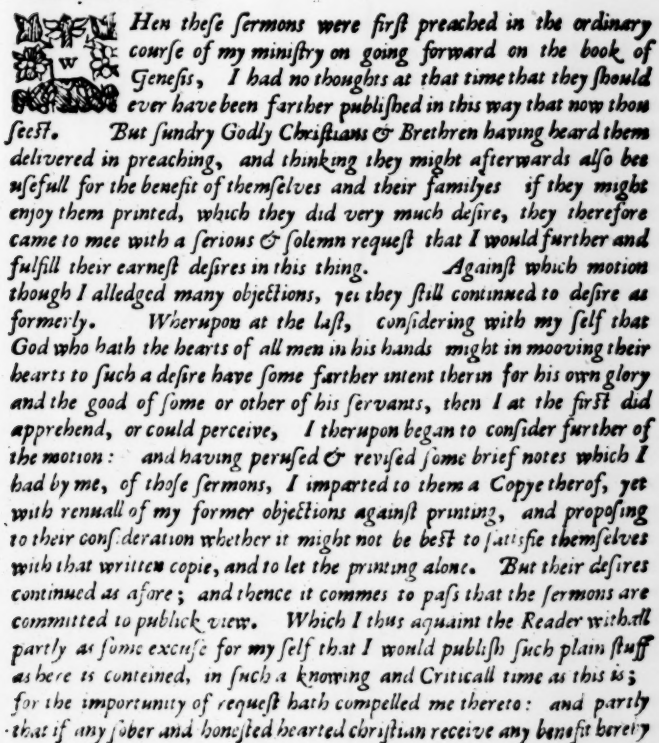 WHen theſe ſermons were firſt preached in the ordinary
courſe of my miniſtry on going forward on the book of
Geneſis, I had no thoughts at that time that they ſhould
ever have been farther publiſhed in this way that now thou
ſeeſt. But ſundry Godly Chriſtians & Brethren having heard them
delivered in preaching, and thinking they might afterwards alſo bee
uſefull for the benefit of themſelves and their familyes if they might
enjoy them printed, which they did very much deſire, they therefore
came to mee with a ſerious & ſolemn requeſt that I would further and
fulfill their earneſt deſires in this thing. Againſt which motion
though I alledged many objections, yet they ſtill continued to deſire as
formerly. Wherupon at the laſt, conſidering with my ſelf that
God who hath the hearts of all men in his hands might in mooving their
hearts to ſuch a deſire have ſome farther intent therin for his own glory
and the good of ſome or other of his ſervants, then I at the firſt did
apprehend, or could perceive, I therupon began to conſider further of
the motion: and having peruſed & reviſed ſome brief notes which I
had by me, of thoſe ſermons, I imparted to them a Copye therof, yet
with renuall of my former objections againſt printing, and propoſing
to their conſideration whether it might not be beſt to ſatisfie themſelves
with that written copie, and to let the printing alone. But their deſires
continued as afore; and thence it commes to paſs that the ſermons are
committed to publick view. Which I thus aquaint the Reader withall
partly as ſome excuſe for my ſelf that I would publiſh ſuch plain ſtuff
as here is conteined, in ſuch a knowing and Criticall time as this is;
for the importunity of requeſt hath compelled me thereto: and partly
that if any ſober and honeſted hearted chriſtian receive any benefit hereby